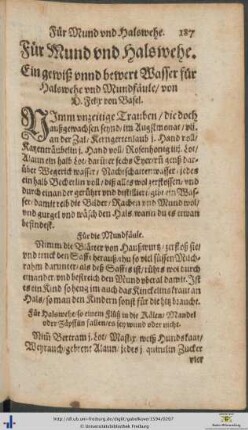 Für Mund vnd Halswehe. 187
Für Mund vnd Halswehe.
Ein gewiß vnnd bewert Wasser für
Halswehe vnd Mundfäule/ von
D. Felix von Basel.
NImm vnzeitige Trauben/ die doch
außgewachsen seynd/ im Augstmonat/
an der Zal/ Kerngertenlaub j. Hand voll/
j. Hand voll/ Rosenhonig iiij. Lot/
Alaun ein halb Lot/ darüber sechs Eyerklar geuß dar-
über Wegerich wasser/ Nachtschatten wasser/ jedes
ein halb Becherlin voll/ diß alles wol zerstossen/ vnd
durch einander gerührt vnd distillirt
ser/ damit reib die Bilder/ Rachen vnd Mund wol/
vnd gurgel vnd wäsch den Hals wann du es etwan
befindest.
Für die Mundfäule.
Nimm die Blätter von Haußwurtz/ zerstoß sie/
vnd truck den Safft herauß/ thu so viel süssen Milch-
rahm darunter/ als deß Saffts ist/ rührs wol durch
einander vnd bestreich den Mund vberal damit. Ist
es ein Kind so heng im auch das Krucklein kraut an
Hals/ so man den Kindern sonst für die braucht.
Für Halswehe/ so einem Flüß in die Kälen/ Mandel
oder Zäpfflin fallen/ es sey wund oder nicht.
Nim Bertram j. Lot/ Mastix, weiß Hundskaat/
Weyrauch/ gebrent Alaun/ jedes j. quintlin Zucker
vier
http://dl.ub.uni-freiburg.de/diglit/gabelkover1594/0207
© Universitätsbibliothek Freiburg